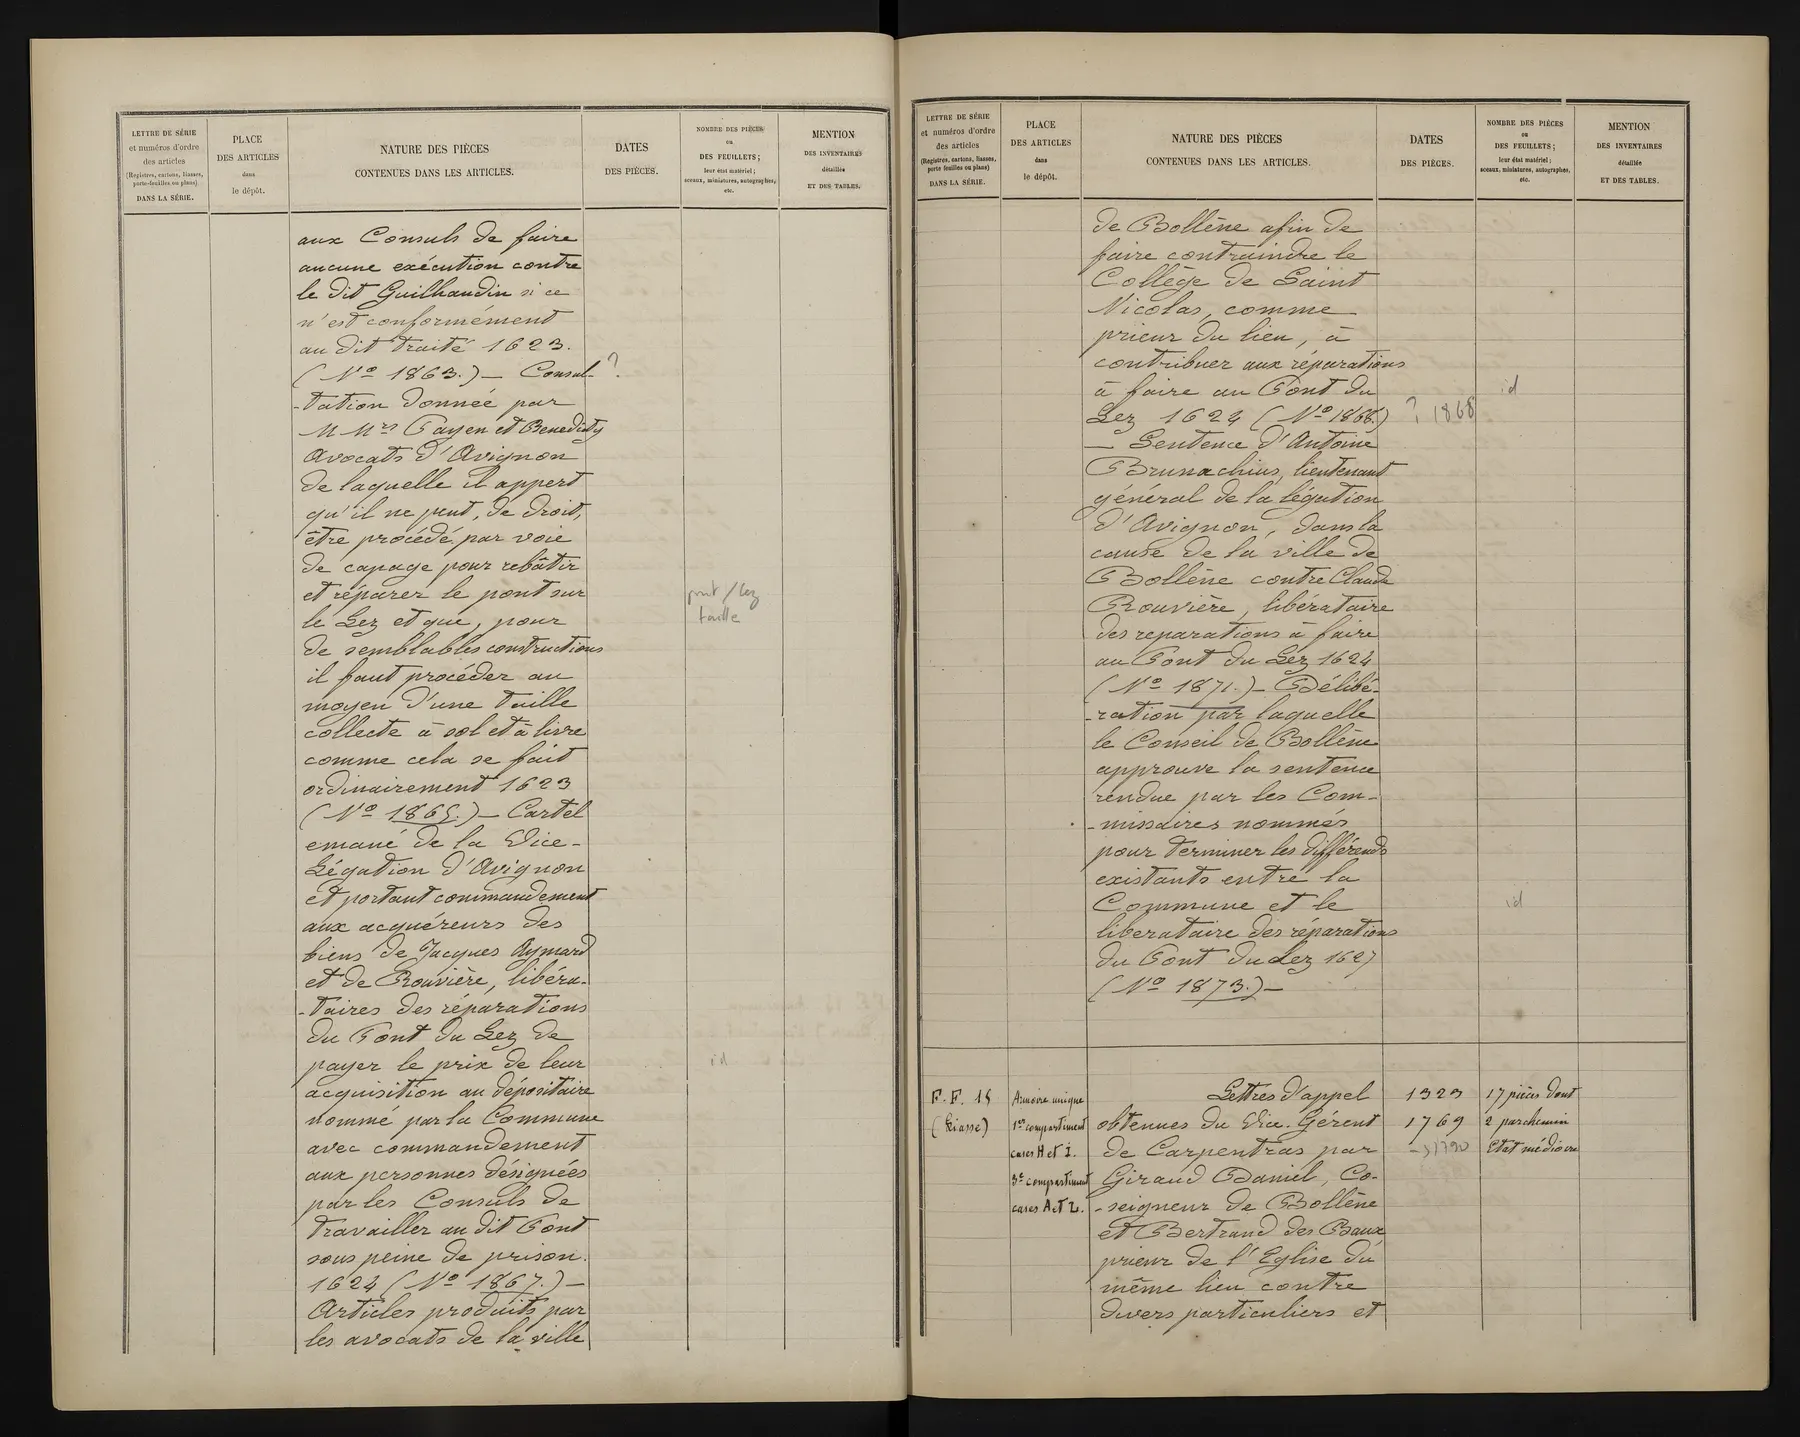 LETTRE DE SÉRIE
et numéros d'ordre
des articles
(Registres, cartons, liasses,
porte-feuilles ou plans)
DANS LA SÉRIE.
PLACE
DES ARTICLES
dans
le dépôt.
NATURE DES PIÈCES
CONTENUES DANS LES ARTICLES.
DATES
DES PIÈCES.
NOMBRE DES PIÈCES
ou
DES FEUILLETS;
leur état matériel;
sceaux, miniatures, autographes,
etc.
MENTION
DES INVENTAIRES
détaillés
ET DES TABLES.
aux Consuls de faire
aucune exécution contre
le dit Guilhaudin si ce
n'est conformément
au dit traité 1623.
(No 1863.) — Consul- ?
-tation donnée par
MMrs Payen et Benedicty
Avocats d'Avignon
de laquelle il appert
qu'il ne peut, de droit,
être procédé par voie
de capage pour rebâtir
et réparer le pont sur
pont / Lez
le Lez et que, pour
taille
de semblables constructions
il faut procéder au
moyen d'une taille
collecte à sol et à livre
comme cela se fait
ordinairement 1623
(No 1865.) — Cartel
emané de la Vice-
Légation d'Avignon
et portant commandement
aux acquéreurs des
biens de Jacques Aymard
et de Rouvière, libéra-
-taires des réparations
du Pont du Lez de
payer le prix de leur id
acquisition au dépositaire
nommé par la Commune
avec commandement
aux personnes désignées
par les Consuls de
travailler au dit Pont
sous peine de prison.
1624 (No 1867.) —
Articles produits par
les avocats de la ville
LETTRE DE SÉRIE
et numéros d'ordre
des articles
(Registres, cartons, liasses,
porte feuilles ou plans)
DANS LA SÉRIE.
PLACE
DES ARTICLES
dans
le dépôt.
NATURE DES PIÈCES
CONTENUES DANS LES ARTICLES.
DATES
DES PIÈCES.
NOMBRE DES PIÈCES
ou
DES FEUILLETS;
leur état matériel;
sceaux, miniatures, autographes,
etc.
MENTION
DES INVENTAIRES
détaillés
ET DES TABLES.
de Bollène afin de
faire contraindre le
Collège de Saint
Nicolas, comme
prieur du lieu, à
contribuer aux réparations
à faire au Pont du id
Lez 1624 (No 1868.) ? 1868
— Sentence d'Antoine
Brunachius, lieutenant
général de la légation
d'Avignon, dans la
cause de la ville de
Bollène contre Claude
Rouvière, libérataire
des reparations à faire
au Pont du Lez 1624
(No 1871.) — Délibé-
-ration par laquelle
le Conseil de Bollène
approuve la sentence
rendue par les Com-
-missaires nommés
pour terminer les différends
existants entre la
Commune et le id
liberataire des réparations
du Pont du Lez 1627
(No 1873.) —
F.F. 18 Armoire unique Lettres d'appel 1323 17 pièces dont
(Liasse) 1er compartiment obtenues du Vice-Gérent 1769 2 parchemin
cases H et I. de Carpentras par → 1790 Etat médiocre
3e compartiment Giraud Daniel, Co-
cases A et L. -seigneur de Bollène
et Bertrand des Baux
prieur de l'Eglise du
même lieu contre
divers particuliers et